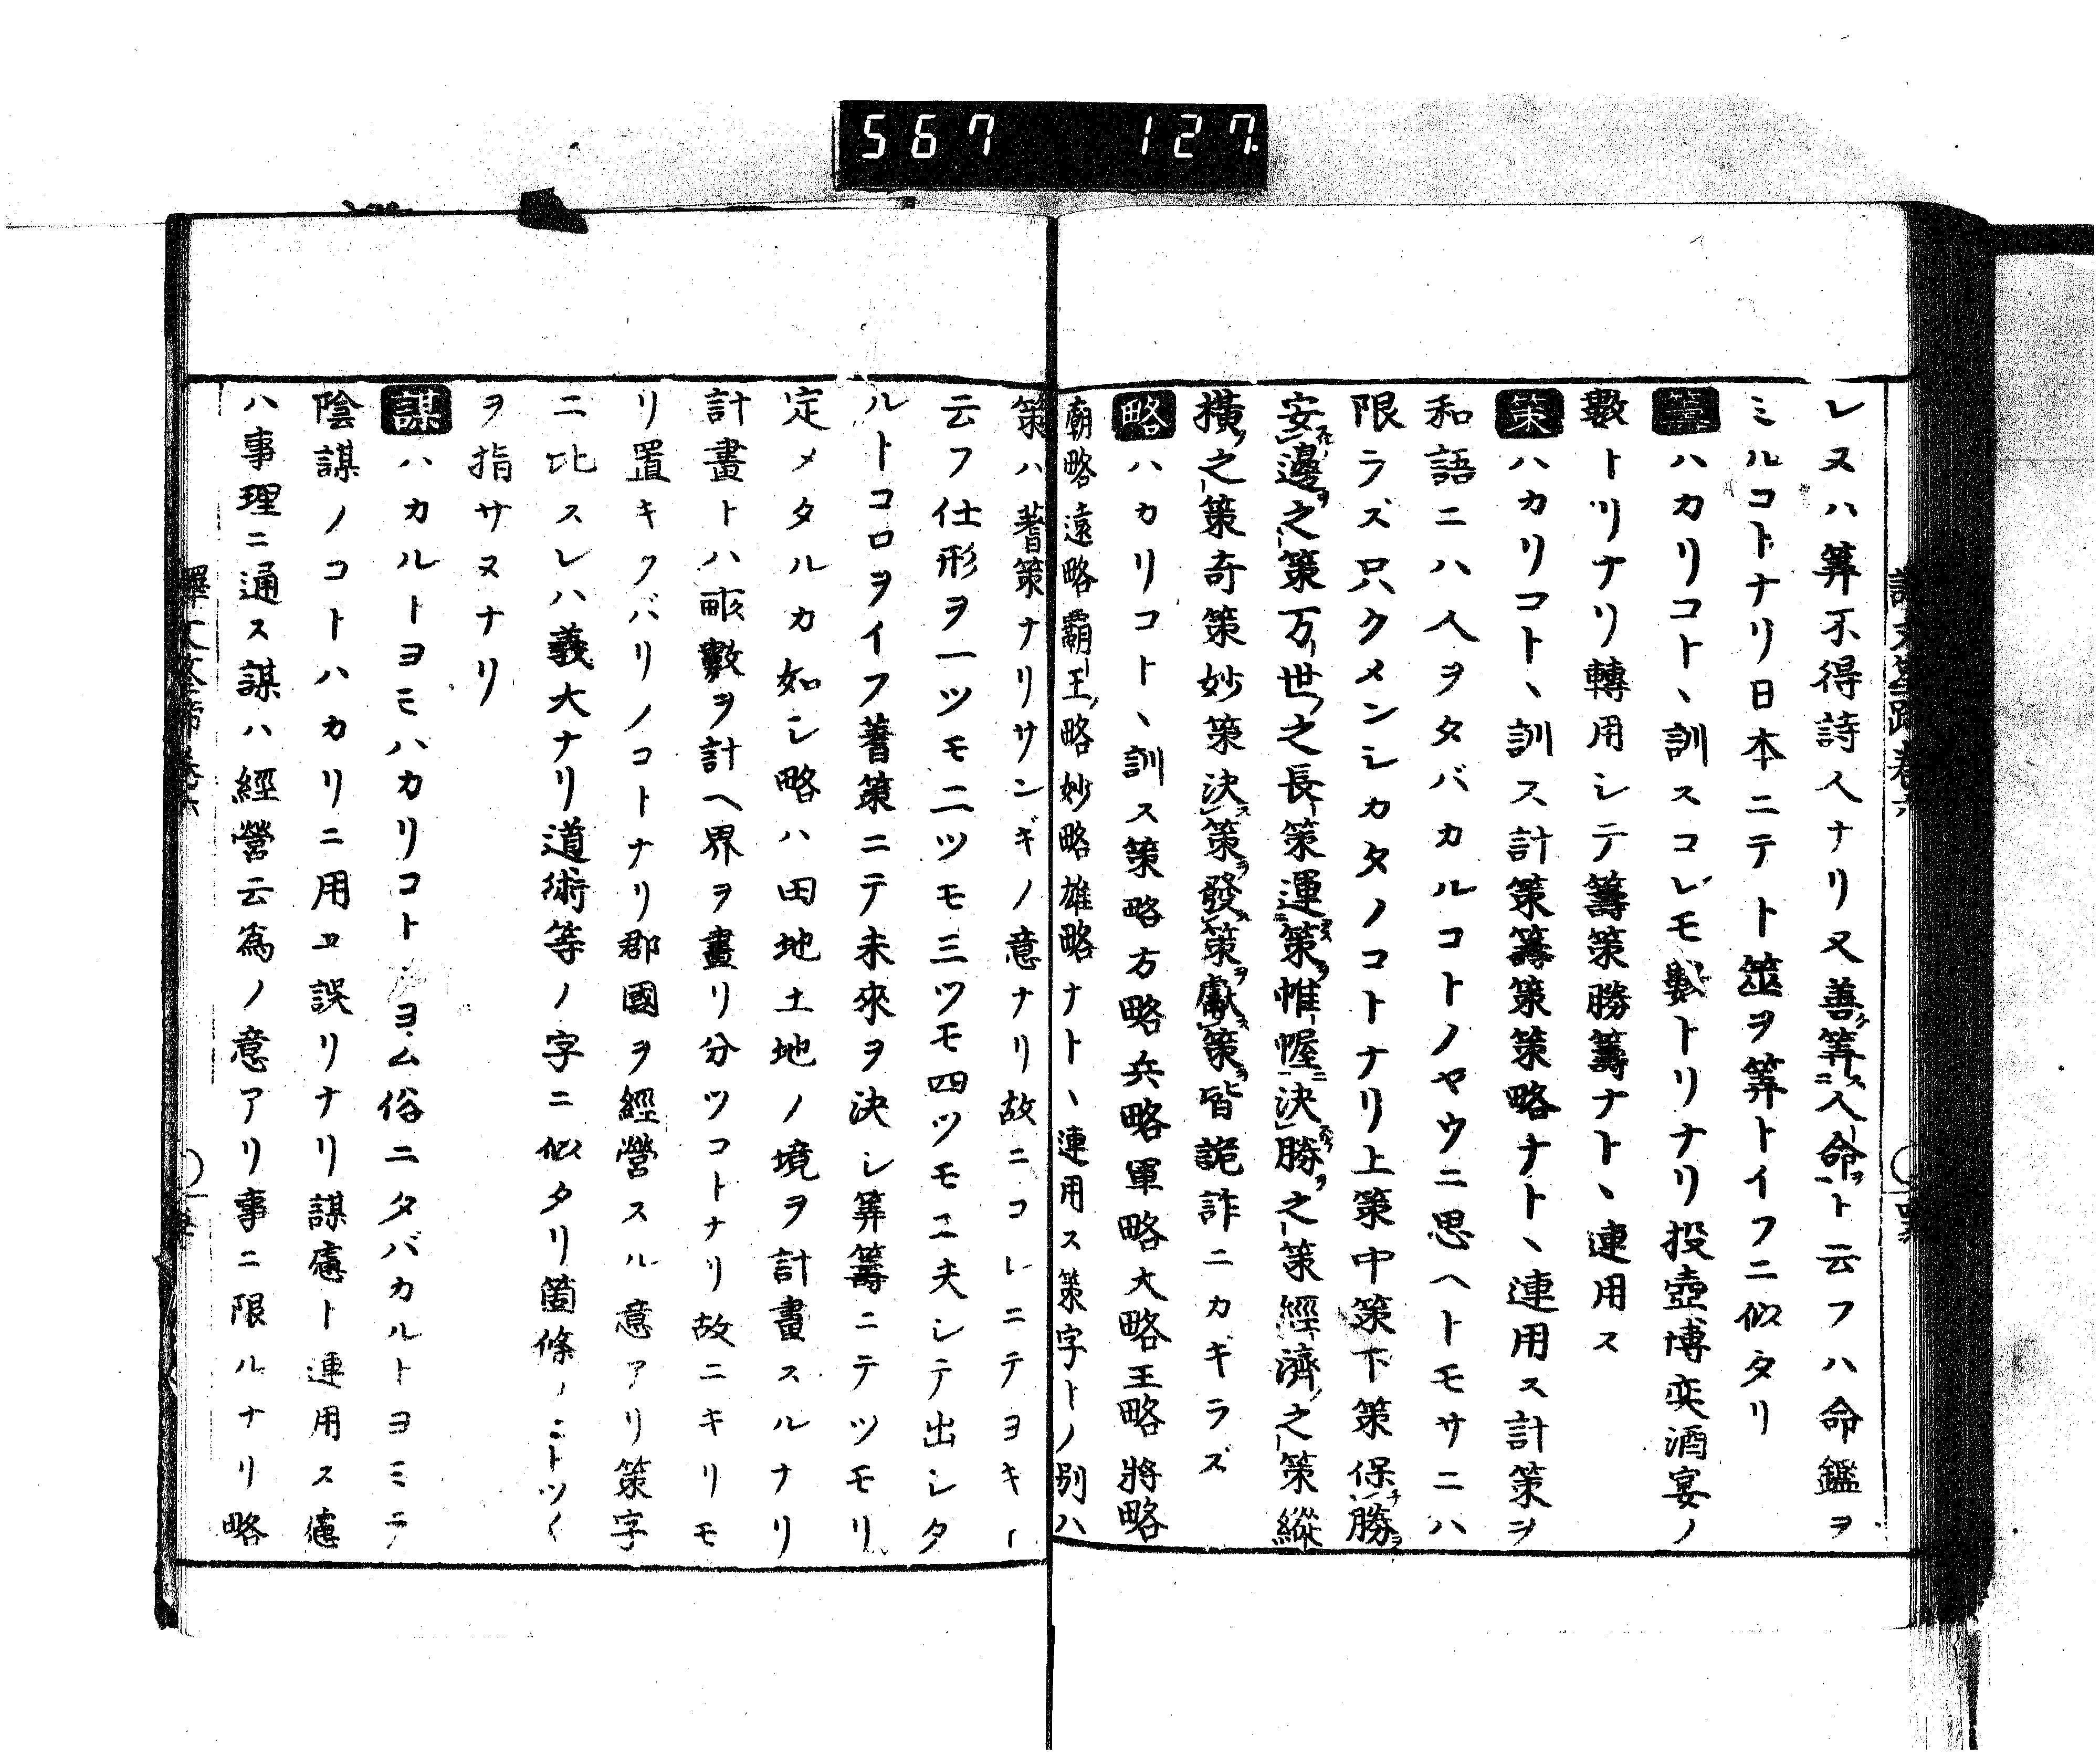 567 127
レヌハ筭不得詩人ナリ又善筭人命ト云フハ命鑑ヲ
ミルコトナリ日本ニテト筮ヲ筭トイフニ似タリ
籌ハカリコトヽ訓スコレモ數トリナリ投壺博奕酒宴ノ
數トリナリ轉用シテ籌策勝籌ナトヽ連用ス
策ハカリコトヽ訓ス計策籌策策略ナトヽ連用ス計策ヲ
和語ニハ人ヲタバカルコトノヤウニ思ヘトモサニハ
限ラズ只クメンシカタノコトナリ上策中策下策保勝
安邊之策万世之長策運策帷幄決勝之策經濟之策縱
橫之策奇策妙策決策發策獻策皆詭詐ニカギラズ
略ハカリコトヽ訓ス策略方略兵略軍略大略王略將略
廟略遠略覇王略妙略雄略ナトヽ連用ス策字トノ別ハ
策ハ蓍策ナリサンギノ意ナリ故ニコレニテヨキー
云フ仕形ヲ一ツモ二ツモ三ツモ四ツモ工夫シテ出シタ
ルトコロヲイフ蓍策ニテ未來ヲ決シ筭籌ニテツモリ
定メタルカ如シ略ハ田地土地ノ境ヲ計畫スルナリ
計畫トハ畞數ヲ計ヘ界ヲ畫リ分ツコトナリ故ニキリモ
リ置キクバリノコトナリ郡國ヲ經營スル意アリ策字
ニ比スレハ義大ナリ道術等ノ字ニ似タリ箇條ノニトツ〱
ヲ指サヌナリ
謀ハカルトヨミハカリコトヽヨム俗ニタバカルトヨミテ
陰謀ノコトハカリニ用ユ誤リナリ謀慮ト連用ス慮
ハ事理ニ通ス謀ハ經營云爲ノ意アリ事ニ限ルナリ略